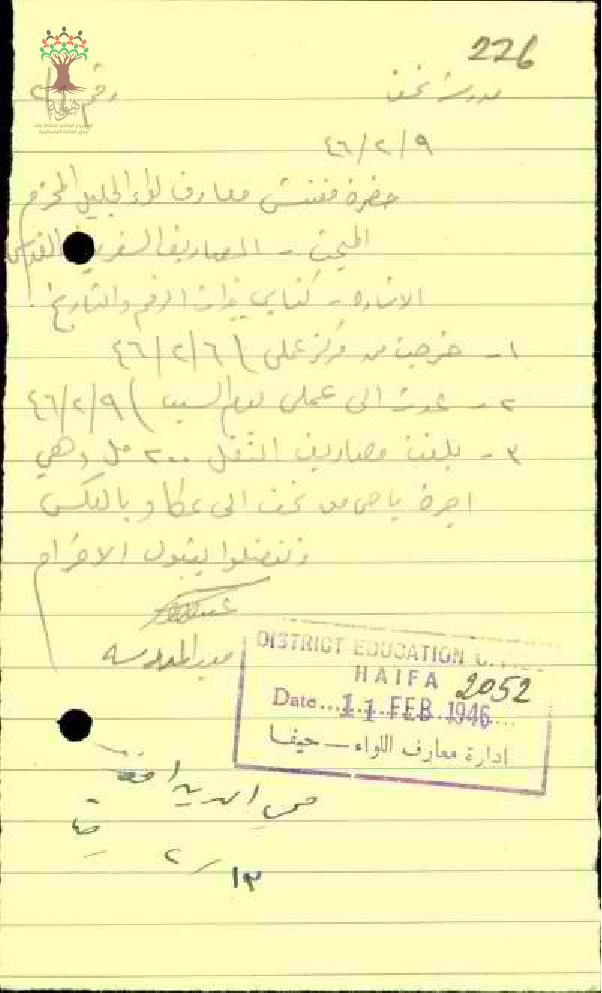 226
مدرسة نحف
رقم
٤٦/٢/٩
حضرة مفتش معارف لواء الجليل المحترم
المبحث - المصاريف السفرية
الاشارة - كتابي بذات الرقم والتاريخ
١- خرجت من مركز عملي ٤٦/٢/٦
٢- عدت الى عملي ٤٦/٢/٩
٣- بلغت مصاريف التنقل ٢٠٠ مل وهي
اجرة باص من نحف الى عكا وبالعكس
وتفضلوا بقبول الاحترام
مدير المدرسة
DISTRICT EDUCATION
HAIFA 2052
Date 11 FEB 1946
ادارة معارف اللواء — حيفا
٢/١٣